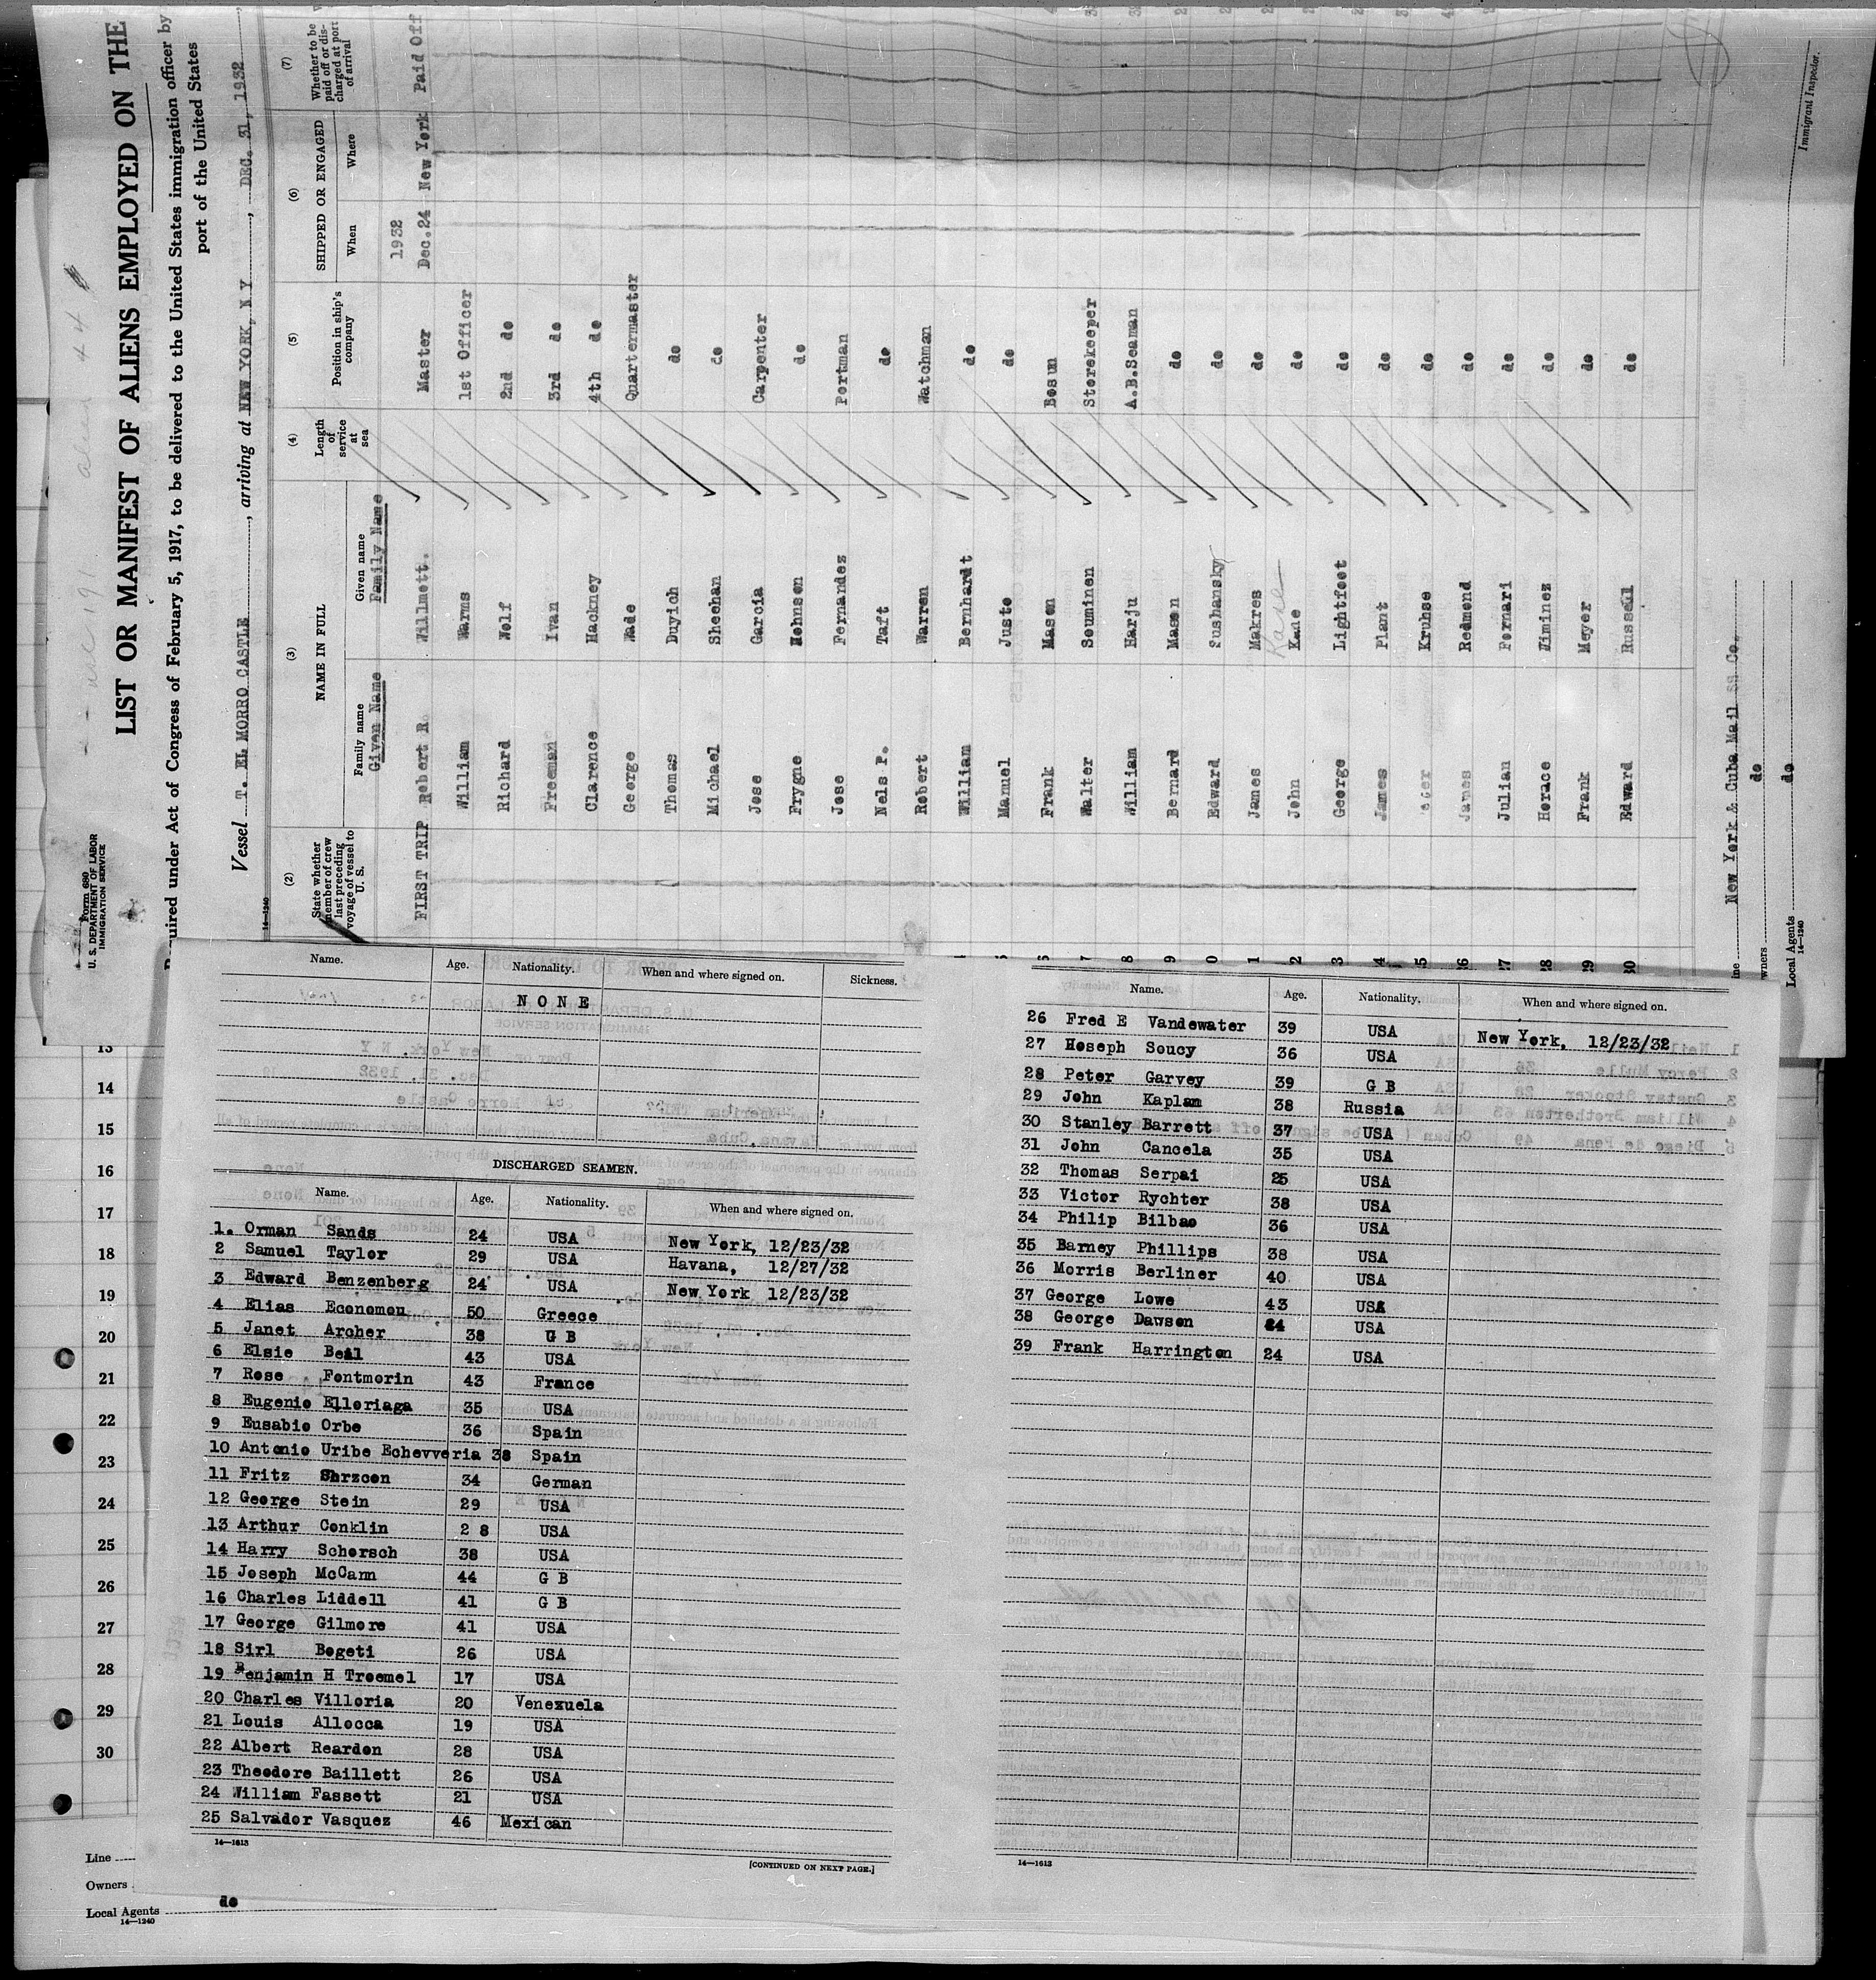 Form 680
U. S. DEPARTMENT OF LABOR
IMMIGRATION SERVICE
LIST OR MANIFEST OF ALIENS EMPLOYED ON THE
uired under Act of Congress of February 5, 1917, to be delivered to the United States immigration officer by
port of the United States
Vessel T. EL MORRO CASTLE, arriving at NEW YORK, N Y, DEC. 31, 1932
14—1240
(2) (3) (4) (5) (6) (7)
State whether member of crew last preceding voyage of vessel to U. S.
NAME IN FULL
Family name Given name
Given Name Family Name
Length of service at sea
Position in ship's company
SHIPPED OR ENGAGED
When Where
Whether to be paid off or discharged at port of arrival
1932
FIRST TRIP Robert R. Willmott. Master Dec.24 New York Paid Off
William Warms 1st Officer
Richard Wolf 2nd do
Freeman Ivan 3rd do
Clarence Hackney 4th do
George Wade Quartermaster
Thomas Duyich do
Michael Sheehan do
Jose Garcia Carpenter
Frygne do
Jose Fernandez Portman
Nels P. Taft do
Robert Warren Watchman
William Bernhardt do
Manuel Juste do
Frank Mason Bosun
Walter Souminen Storekeeper
William Harju A.B.Seaman
Bernard Mason do
Edward Pushansky do
James Makres do
John Kane do
Kane
George Lightfoot do
James Plant do
Kruhse do
James Redmond do
Julian Fornari do
Horace Ziminez do
Frank Meyer do
Edward Russell do
New York & Cuba Mail SS Co.
do
Local Agents do
14—1240
Immigrant Inspector.
Name. Age. Nationality. When and where signed on. Sickness.
N O N E
DISCHARGED SEAMEN.
Name. Age. Nationality. When and where signed on.
1. Orman Sands 24 USA New York, 12/23/32
2 Samuel Taylor 29 USA Havana, 12/27/32
3 Edward Benzenberg 24 USA New York 12/23/32
4 Elias Economou 50 Greece
5 Janet Archer 38 G B
6 Elsie Bell 43 USA
7 Rose Fontmorin 43 France
8 Eugenio Elloriaga 35 USA
9 Eusabio Orbe 36 Spain
10 Antonio Uribe Echevveria 38 Spain
11 Fritz 34 German
12 George Stein 29 USA
13 Arthur Conklin 2 8 USA
14 Harry Schorsch 38 USA
15 Joseph McCann 44 G B
16 Charles Liddell 41 G B
17 George Gilmore 41 USA
18 Sirl Bogeti 26 USA
19 Benjamin H Troemel 17 USA
20 Charles Villoria 20 Venexuela
21 Louis Allocca 19 USA
22 Albert Reardon 28 USA
23 Theodore Baillett 26 USA
24 William Fassett 21 USA
25 Salvador Vasquez 46 Mexican
14—1613
[CONTINUED ON NEXT PAGE.]
Name. Age. Nationality. When and where signed on.
26 Fred E Vandewater 39 USA New York, 12/23/32
27 Hoseph Soucy 36 USA
28 Peter Garvey 39 G B
29 John Kaplan 38 Russia
30 Stanley Barrett 37 USA
31 John Cancela 35 USA
32 Thomas Serpai 25 USA
33 Victor Rychter 38 USA
34 Philip Bilbao 36 USA
35 Barney Phillips 38 USA
36 Morris Berliner 40 USA
37 George Lowe 43 USA
38 George Dawson 24 USA
39 Frank Harrington 24 USA
14—1613
13
14
15
16
17
18
19
20
21
22
23
24
25
26
27
28
29
30
Line
Owners
Local Agents do
14—1240